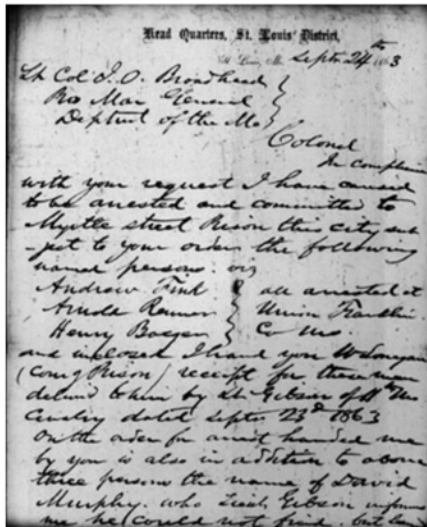 Head Quarters, St. Louis District,
St. Louis, Mo. Septr 24th 1863
Lt Col J. O. Broadhead
Pro Mar General
Deptmt of the Mo
Colonel
In complian
with your request I have caused
to be arrested and committed to
Myrtle street Prison this city sub
-ject to your order the following
named persons. viz
Andrew Fink all arrested at
Arnold Union Franklin
Henry Co Mo.
and inclosed I hand you
(Comg Prison) receipt for these men
delivd to him by Lt Gibson of 11th Mo
Cavalry dated Septr 23d 1863
On the order for arrest handed me
by you is also in addition to above
three persons the name of David
Murphy. who Lieut Gibson informs
me he could not find, but